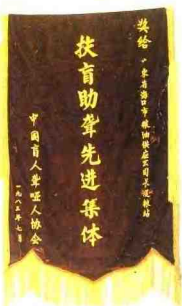 奖给：广东省海口市粮油供应公司长堤粮站
扶盲助聋先进集体
中国盲人聋哑人协会
一九八三年七月